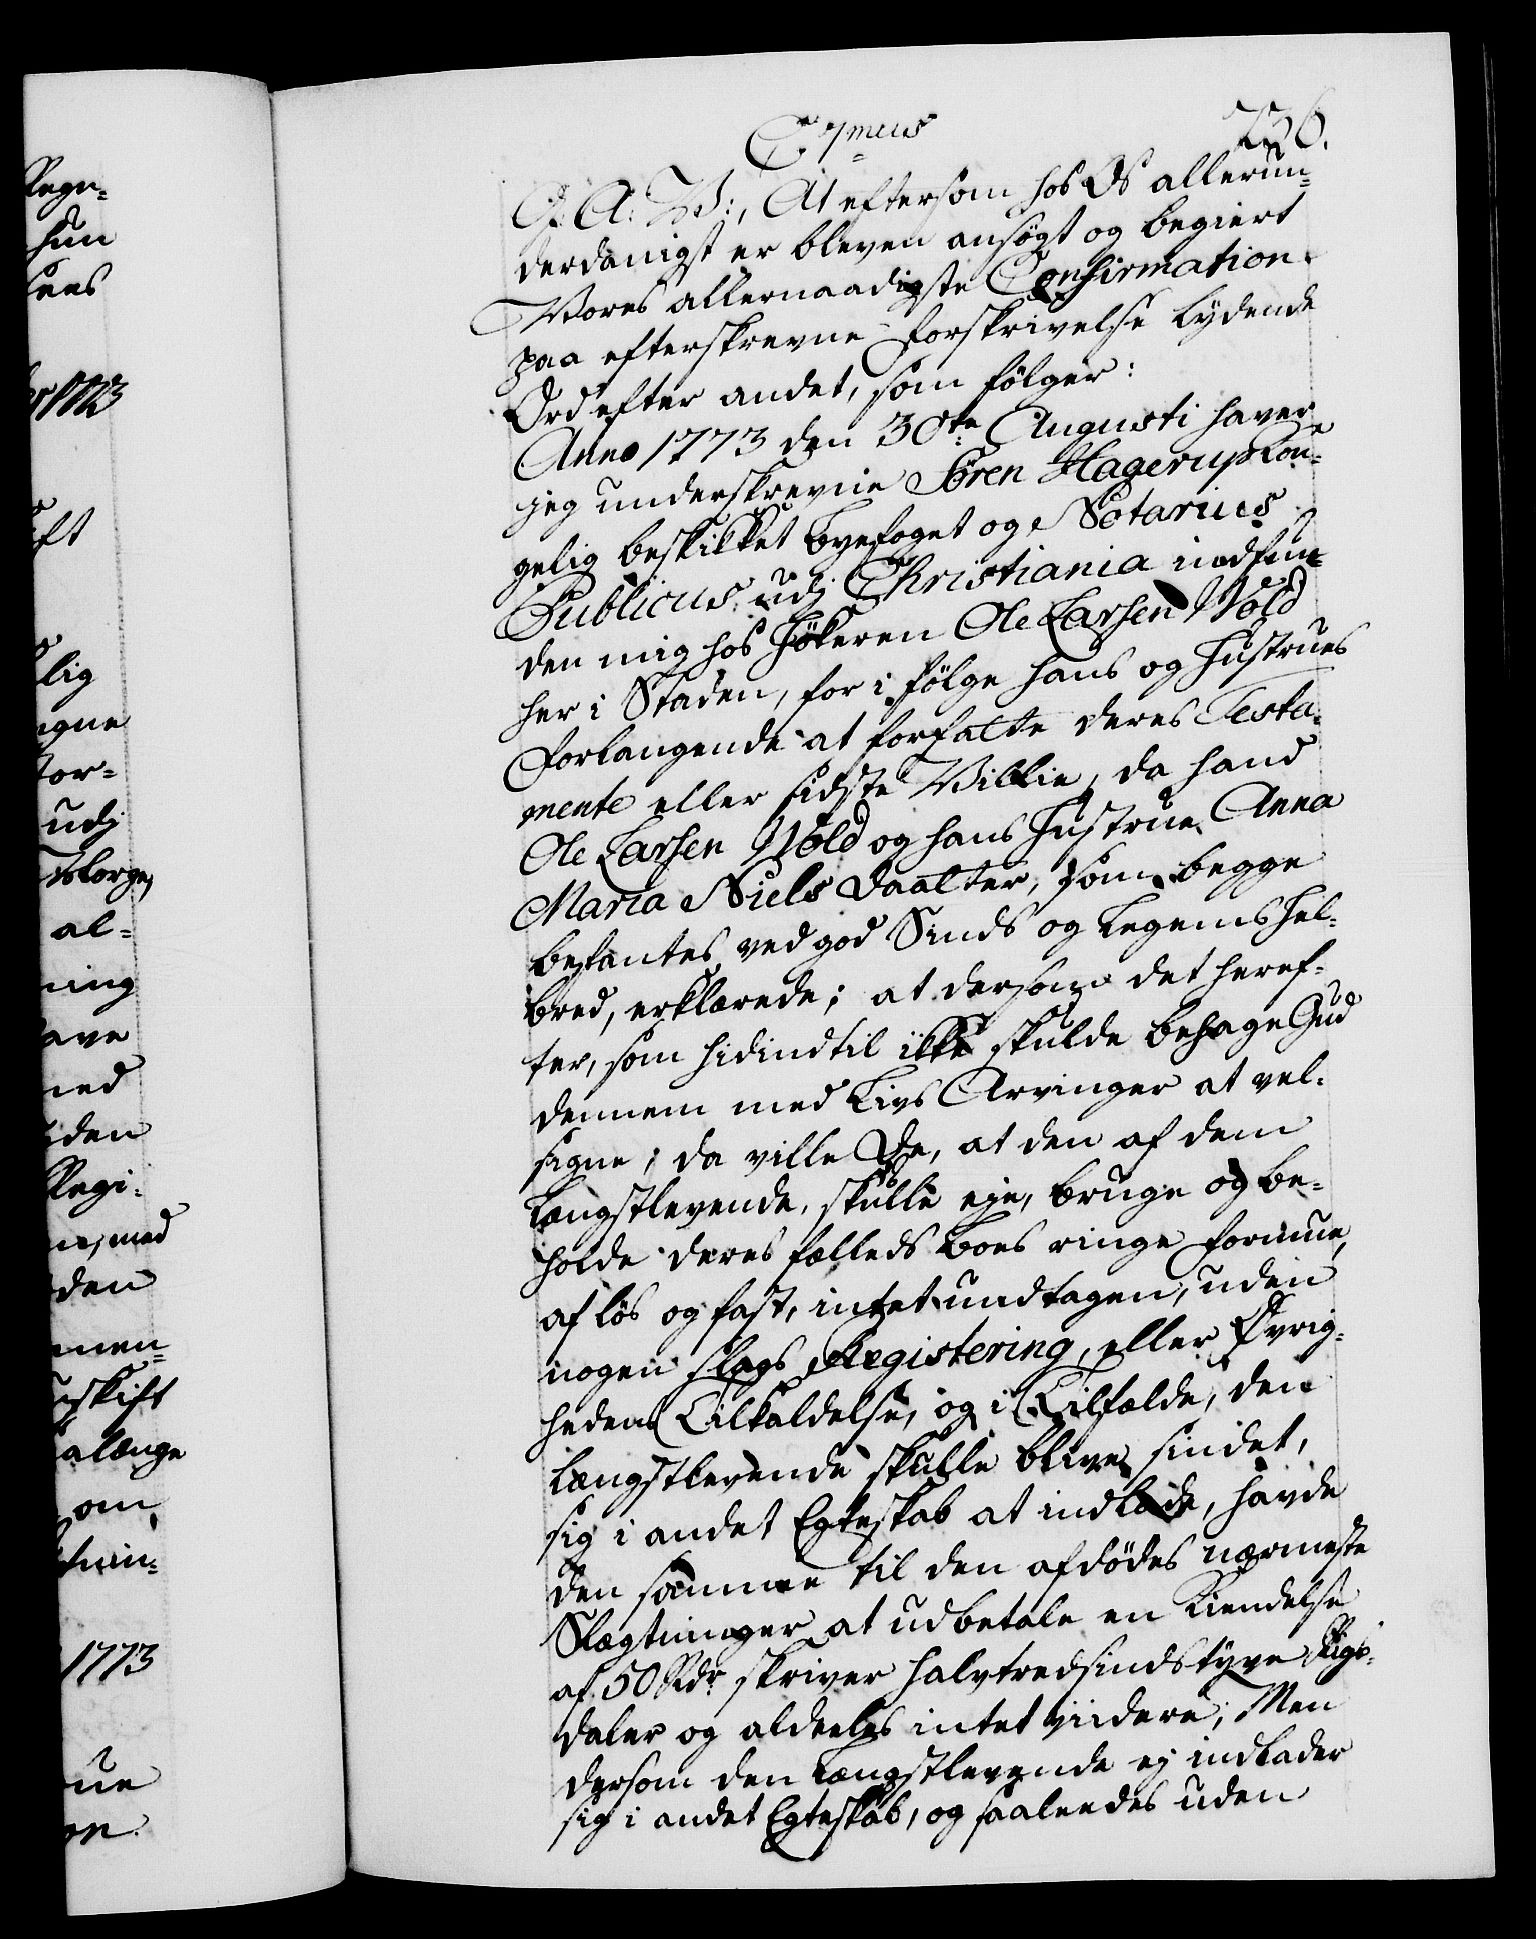 C 7meus
736.
G: A: V:, At eftersom hos Os allerun-
derdanigst er bleven ansøgt og begiert
Vores allernaadigste Confirmation
paa efterskrevne Forskrivelse lydende
Ord efter andet, som følger:
Anno 1773 den 30te Augusti haver
jeg underskrevne Søren Hagerup Kon-
gelig beskikket Byefoget og Notarius
Publicus udj Christiania indfun-
den mig hos Høkeren Ole Larsen Wold
her i Staden, for i følge hans og Hustrues
Forlangende at forfatte deres Testa-
mente eller sidste Villie, da hand
Ole Larsen Wold og hans Hustrue Anna
Maria Niels Daatter, som begge
befantes ved god Sinds og Legems Hel-
bred, erklærede; at dersom det heref-
ter, som hidindtil ikke skulde behage Gud
dennem med Livs Arvinger at vel-
signe; da ville De, at den af dem
Længstlevende, skulle eje, bruge og be-
holde deres fælleds Boes ringe Formue,
af løs og fast, intet undtagen, uden
nogen slags Registering, eller Øvrig-
hedens Tilkaldelse, og i Tilfælde, den
Længstlevende skulle blive sindet,
sig i andet Egteskab at indlade, havde
den samme til den afdødes nærmeste
Slægtninger at udbetale en Kiendelse
af 50 Rdr skriver halvtredsindstyve Rigs-
daler og aldeeles intet viidere; Men
dersom den Længstlevende ej indlader
sig i andet Egteskab, og saaleedes uden
Regi-
hun
1773
lig
egne
udj
Norge,
al-
ning
ave
med
den
Regi-
med
den
skift
alænge
om
1773